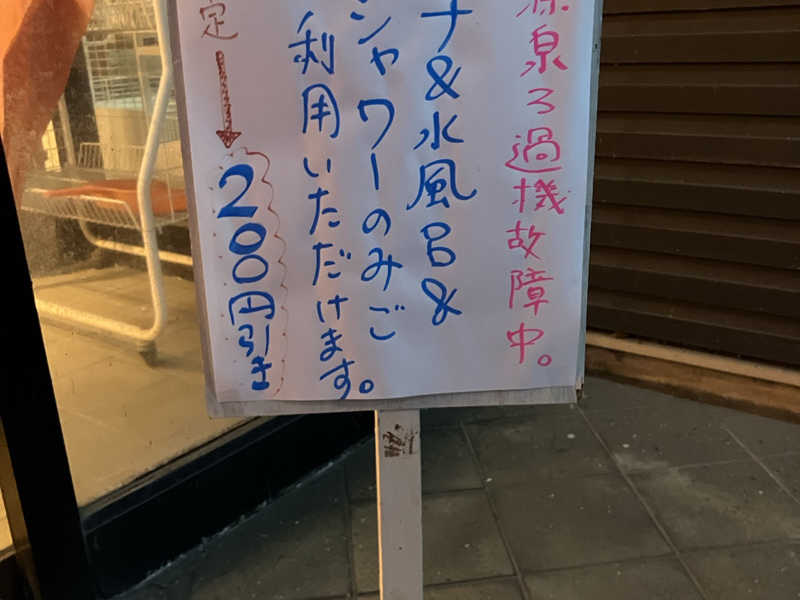 源泉ろ過機故障中。
ナ&水風呂&
シャワーのみご
利用いただけます。
定
200円引き